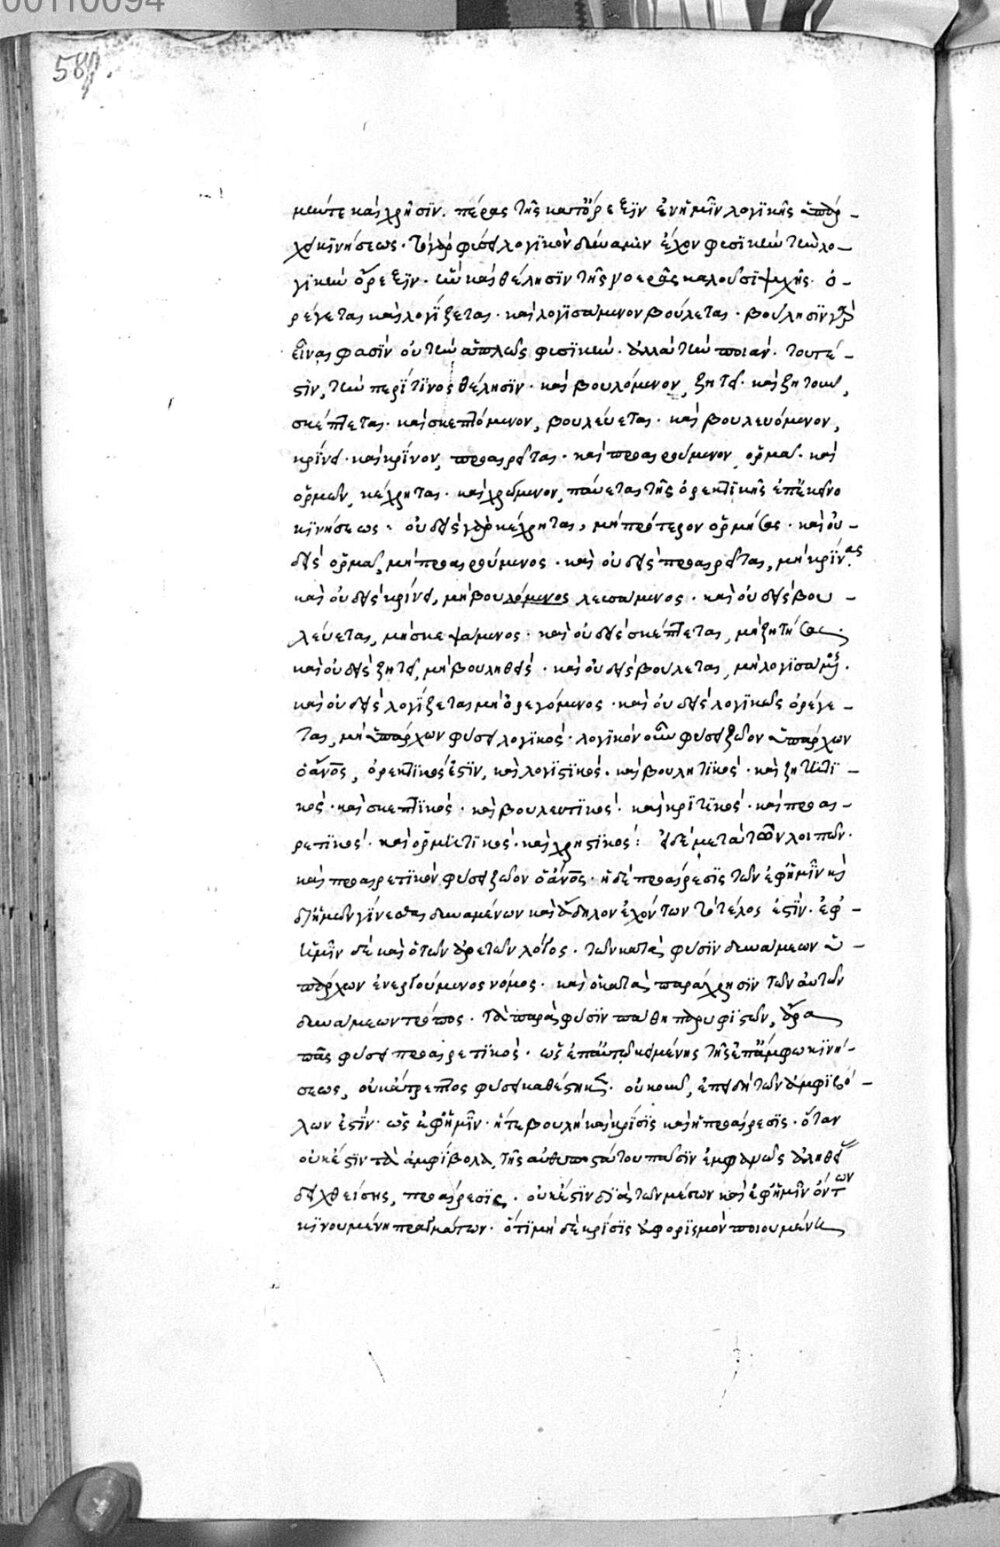 00110094
58
μένη τε καὶ χρῆσιν. πέρας τῆς κατ' ὄρεξϊν ἐν ἡμῖν λογϊκῆς ὑπάρ-
χει κϊνήσεως. τὸ γὰρ φύσει λογϊκὸν δύναμιν ἔχον φυσϊκὴν τὴν λο-
γϊκὴν ὄρεξϊν. ἣν καὶ θέλησϊν τῆς νοερᾶς καλοῦσϊ ψυχῆς. ὀ-
ρέγεται καὶ λογΐζεται. καὶ λογϊσάμενον βούλεται. βούλησϊν γὰρ
εἶναι φασϊν οὐ τὴν ἁπλῶς φυσϊκήν. ἀλλὰ τὴν ποιάν. τουτέ-
στϊν, τὴν περί τϊνος θέλησϊν. καὶ βουλόμενον, ζητεῖ. καὶ ζητοῦν,
σκέπτεται. καὶ σκεπτόμενον, βουλεύεται. καὶ βουλευόμενον,
κρΐνει. καὶ κρῖνον, προαιρεῖται. καὶ προαιρούμενον, ὁρμᾶ. καὶ
ὁρμῶν, κέχρηται. καὶ χρώμενον, παύεται τῆς ὀρεκτϊκῆς ἐπ' ἐκεῖνο
κϊνήσεως. οὐδεὶς γὰρ κέχρηται, μὴ πρότερον ὁρμήσας. καὶ οὐ-
δεὶς ὁρμᾶ, μὴ προαιρούμενος. καὶ οὐδεὶς προαιρεῖται, μὴ κρΐνας
καὶ οὐδεὶς κρΐνει, μὴ βουλόμενος λευσάμενος. καὶ οὐδεὶς βου-
λεύεται, μὴ σκεψάμενος. καὶ οὐδεὶς σκέπτεται, μὴ ζητήσας.
καὶ οὐδεὶς ζητεῖ, μὴ βουληθείς. καὶ οὐδεὶς βούλεται, μὴ λογϊσάμενος.
καὶ οὐδεὶς λογΐζεται μὴ ὀρεγόμενος. καὶ οὐδεὶς λογϊκῶς ὀρέγε-
ται, μὴ ὑπάρχων φύσει λογϊκός. λογϊκὸν οὖν φύσει ζῶον ὑπάρχων
ὁ ἄνος, ὀρεκτϊκός ἐστϊν, καὶ λογϊστϊκός. καὶ βουλητϊκός. καὶ ζητητϊ-
κός. καὶ σκεπτϊκός. καὶ βουλευτϊκός. καὶ κρϊτϊκός. καὶ προαι-
ρετϊκός. καὶ ὁρμητϊκός. καὶ χρηστϊκός: εἰ δὲ μετὰ τῶν λοιπῶν.
καὶ προαιρετϊκὸν φύσει ζῶον ὁ ἄνος. ἡ δὲ προαίρεσϊς τῶν ἐφ' ἡμῖν καὶ
δι' ἡμῶν γΐνεσθαι δυναμένων καὶ ἄδηλον ἐχόντων τὸ τέλος ἐστϊν. ἐφ'
ἡμῖν δὲ καὶ ὁ τῶν ἀρετῶν λόγος. τῶν κατὰ φύσϊν δυνάμεων ὑ-
πάρχων ἐνεργούμενος νόμος. καὶ ὁ κατὰ παράχρησϊν τῶν αὐτῶν
δυνάμεων τρόπος. τὰ παρὰ φύσϊν πάθη παρυφϊστῶν, ἄρα
πᾶς φύσει προαιρετϊκὸς. ὡς ἐπ' αὐτῷ κειμένης τῆς ἐπ' ἄμφω κϊνή-
σεως, οὐκ ἄτρεπτος φύσει καθέστηκεν. οὐκοῦν, ἐπειδὴ τῶν ἀμφϊβό-
λων ἐστϊν. ὡς ἐφ' ἡμῖν. ἥ τε βουλὴ καὶ κρΐσϊς καὶ ἡ προαίρεσϊς. ὅταν
οὐκ ἔστϊν τὰ ἀμφΐβολα, τῆς αὐθυποστάτου πᾶσϊν ἐμφανῶς ἀληθείας
δειχθείσης, προαίρεσϊς. οὐκ ἔστϊν δϊὰ τῶν μέσων καὶ ἐφ' ἡμῖν ὄντων
κϊνουμένη πραγμάτων. ὅτϊ μὴ δὲ κρΐσϊς ἀφορϊσμὸν ποιουμένη